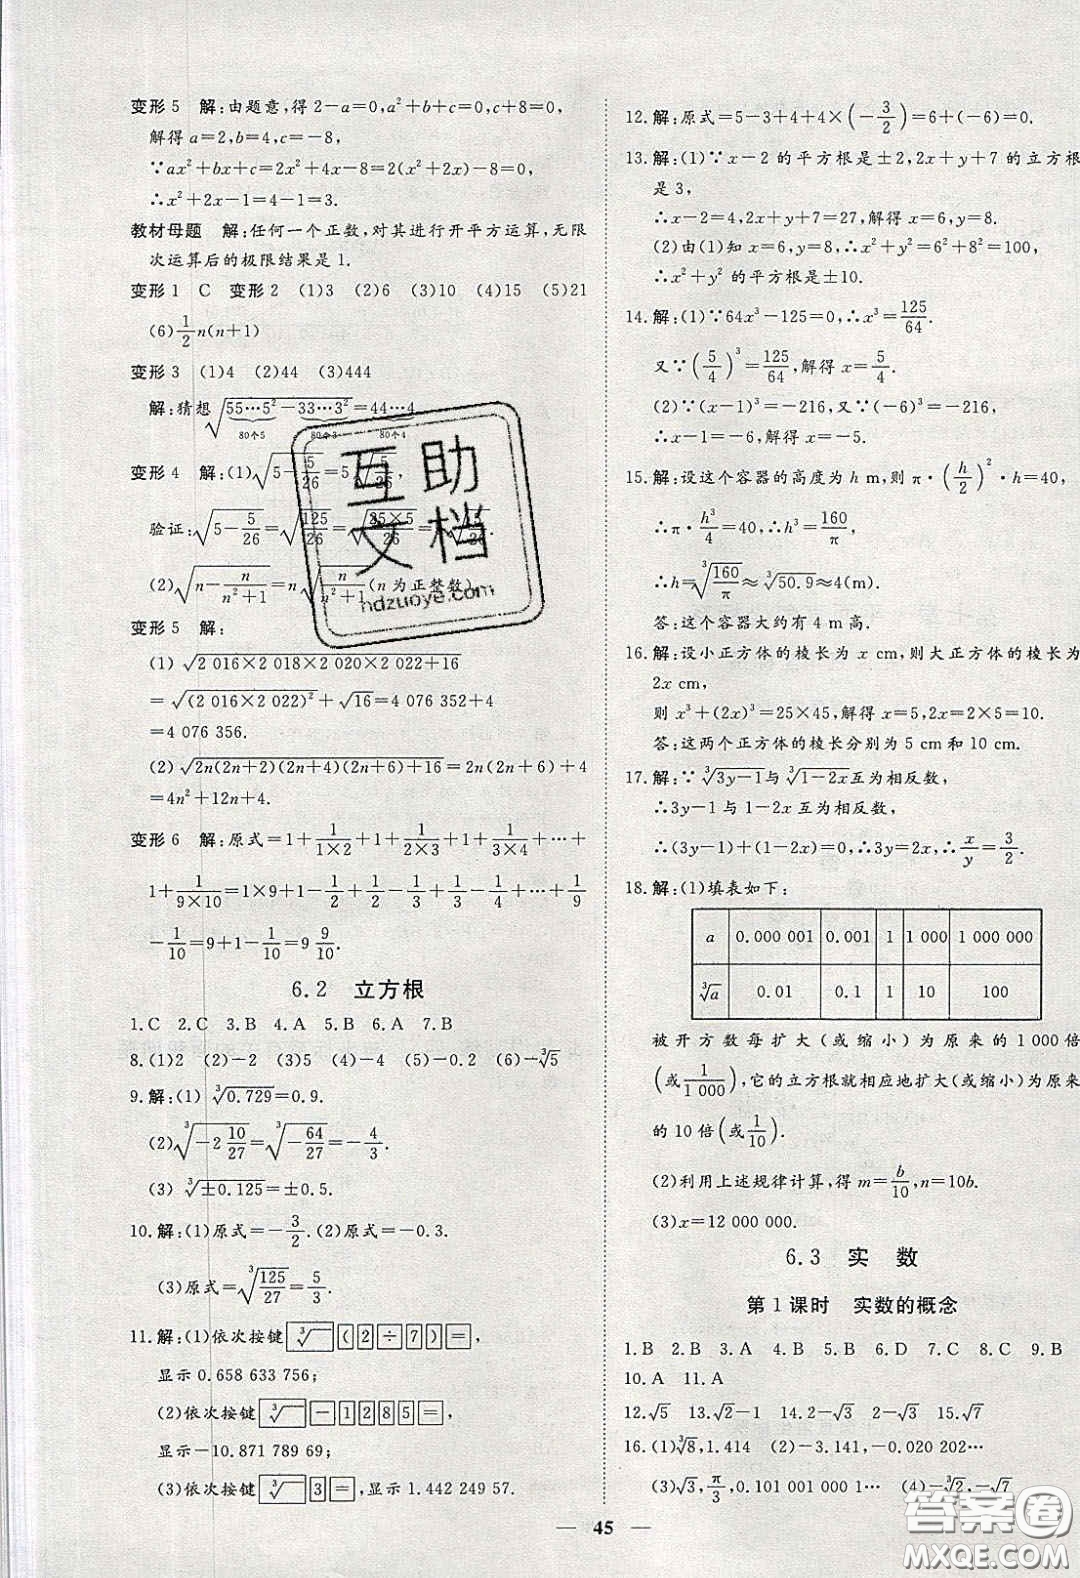 变形5 解:由题意,得2-a=0,a²+b+c=0,c+8=0,
解得a=2,b=4,c=-8.
∵ax²+bx+c=2x²+4x-8=0,∴x²+2x-4=0,
∴x²+2x-1=4-1=3.
教材母题 解:任何一个正数,对其进行开平方运算,无限
次运算后的极限结果是1.
变形1 C 变形2 (1)3 (2)6 (3)10 (4)15 (5)21
(6)1/2n(n+1)
变形3 (1)4 (2)44 (3)444
解:猜想√(55…5²-33…3²)=44…4
80个5 80个3 80个4
变形4 解:(1)√(5-5/26)=5√(5/26),
验证:√(5-5/26)=√(125/26)=√(25×5/26)=
(2)√(n-n/(n²+1))=n√(n/(n²+1))(n为正整数)
变形5 解:
(1) √(2 016×2 018×2 020×2 022+16)
=√((2 016×2 022)²)+√16=4 076 352+4
=4 076 356.
(2)√(2n(2n+2)(2n+4)(2n+6)+16)=2n(2n+6)+4
=4n²+12n+4.
变形6 解:原式=1+1/(1×2)+1+1/(2×3)+1+1/(3×4)+…+
1+1/(9×10)=1×9+1-1/2+1/2-1/3+1/3-1/4+…+1/9
-1/10=9+1-1/10=9 9/10.
6.2 立方根
1.C 2.C 3.B 4.A 5.B 6.A 7.B
8.(1)2 (2)-2 (3)5 (4)4 (5)-0.2 (6)-³√5
9.解:(1) ³√0.729=0.9.
(2)³√(-2 10/27)=³√(-64/27)=-4/3.
(3) ³√±0.125=±0.5.
10.解:(1)原式=-3/2.(2)原式=-0.3.
(3)原式=³√(125/27)=5/3.
11.解:(1)依次按键³√ ( 2 ÷ 7 ) =,
显示0.658 633 756;
(2)依次按键³√ - 1 2 8 5 =,
显示-10.871 789 69;
(3)依次按键³√ 3 =,显示1.442 249 57.
12.解:原式=5-3+4+4×(-3/2)=6+(-6)=0.
13.解:(1)∵x-2的平方根是±2,2x+y+7的立方根
是3,
∴x-2=4,2x+y+7=27,解得x=6,y=8.
(2)由(1)知x=6,y=8,∴x²+y²=6²+8²=100,
∴x²+y²的平方根是±10.
14.解:(1)∵64x³-125=0,∴x³=125/64.
又∵(5/4)³=125/64,解得x=5/4.
(2)∵(x-1)³=-216,又∵(-6)³=-216,
∴x-1=-6,解得x=-5.
15.解:设这个容器的高度为h m,则π·(h/2)²·h=40,
∴π·h³/4=40,∴h³=160/π,
∴h=³√(160/π)≈³√50.9≈4(m).
答:这个容器大约有4 m高.
16.解:设小正方体的棱长为x cm,则大正方体的棱长为
2x cm,
则x³+(2x)³=25×45,解得x=5,2x=2×5=10.
答:这两个正方体的棱长分别为5 cm和10 cm.
17.解:∵³√(3y-1)与³√(1-2x)互为相反数,
∴3y-1与1-2x互为相反数,
∴(3y-1)+(1-2x)=0,∴3y=2x,∴x/y=3/2.
18.解:(1)填表如下:
a 0.000 001 0.001 1 1 000 1 000 000
³√a 0.01 0.1 1 10 100
被开方数每扩大(或缩小)为原来的1 000倍
(或1/1 000),它的立方根就相应地扩大(或缩小)为原来
的10倍(或1/10).
(2)利用上述规律计算,得m=b/10,n=10b.
(3)x=12 000 000.
6.3 实 数
第1课时 实数的概念
1.B 2.B 3.A 4.C 5.B 6.D 7.C 8.C 9.B
10.A 11.A
12.√5 13.√2-1 14.2-√2 2-√2 15.√7
16.(1)³√8,1.414 (2)-3.141,-0.020 202…
(3)√3,π/3,0.101 001 000 1… (4)-³√2,-√7
45
互助
文档
hdzuoye.com
答案圈
MXQE.COM